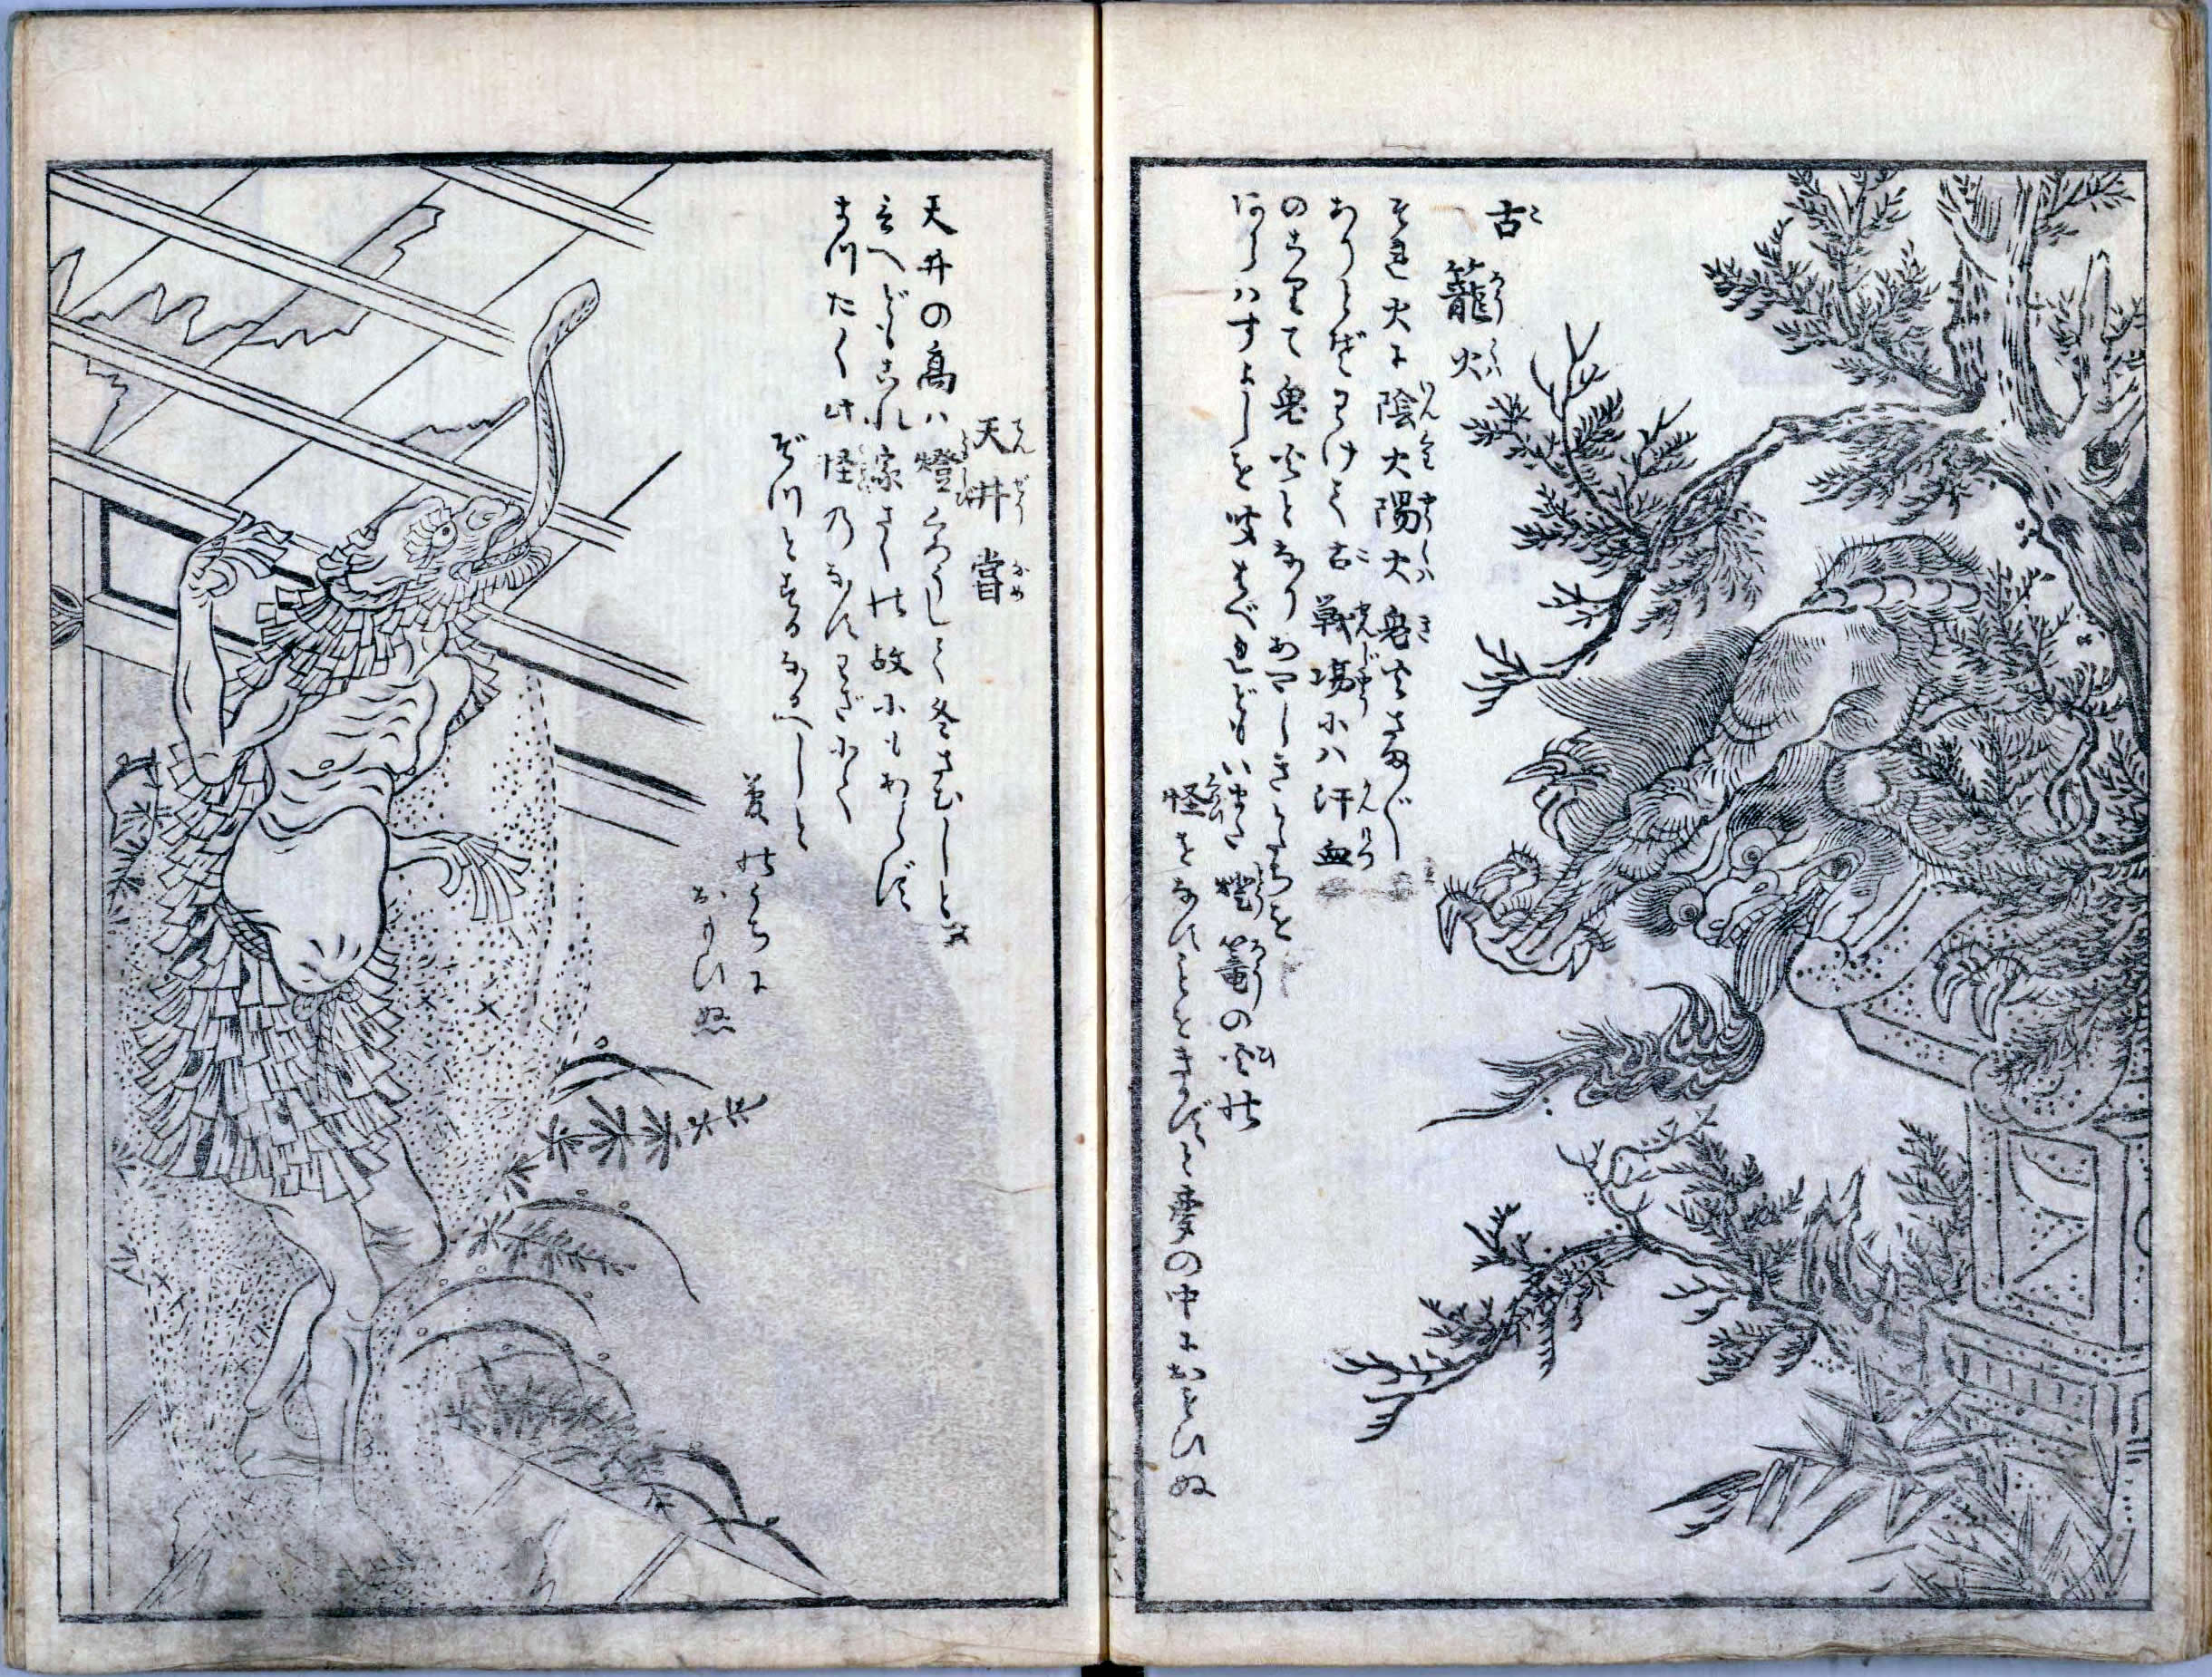 古籠火
それ火に陰火陽火鬼火さま〴〵
ありとぞわけて古戦場には汗血
のこりて鬼火となりあやしきかたちを
あらはすよしを聞はべれどもいまだ燈籠の火の
怪をなすことをきかずと夢の中におもひぬ
天井嘗
天井の高は燈くらうして冬さむしと
言へどもこれ家さくの故にもあらず
まつたく此怪のなすわざにて
ぞつとするなるべしと
夢のうちに
おもひぬ